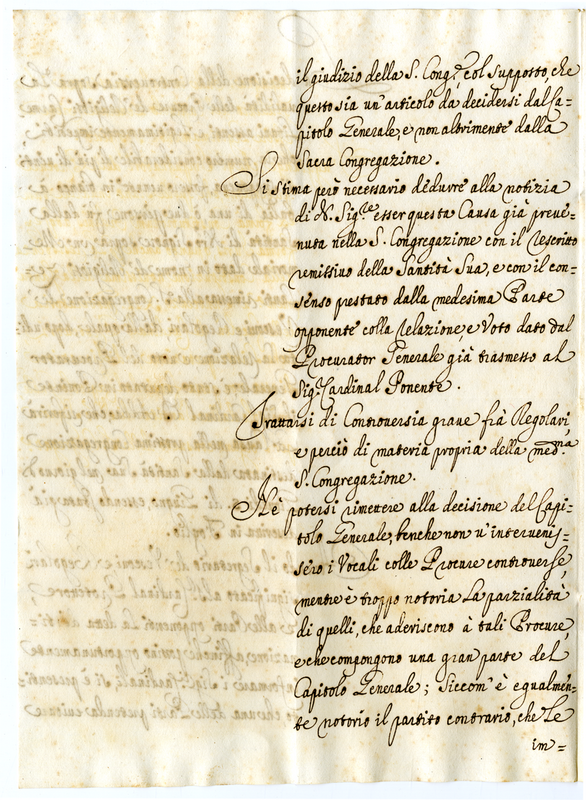 il giudizio della S. Cong.e col supposto, che
questo sia un'articolo da decidersi dal Ca=
pitolo Generale, e non altrimente dalla
Sacra Congregazione.
Si stima però necessario dedurre alla notizia
di N. Sig.re esser questa Causa già preve=
nuta nella S. Congregazione con il rescritto
remissivo della Santità Sua, e con il con=
senso prestato dalla medesima Parte
opponente colla relazione, e Voto dato dal
Procurator Generale già trasmesso al
Sig.r Cardinal Ponente.
Trattarsi di Controversia grave frà Regolari,
e perciò di materia propria della med.ma
S. Congregazione.
Nè potersi rimettere alla decisione del Capi=
tolo Generale, benche non v'intervenis=
sero i Vocali colle Procure controverse,
mentre è troppo notoria la parzialità
di quelli, che aderiscono à tali Procure,
e che compongono una gran parte del
Capitolo Generale; Siccom'è egualmen=
te notorio il partito contrario, che le
im=